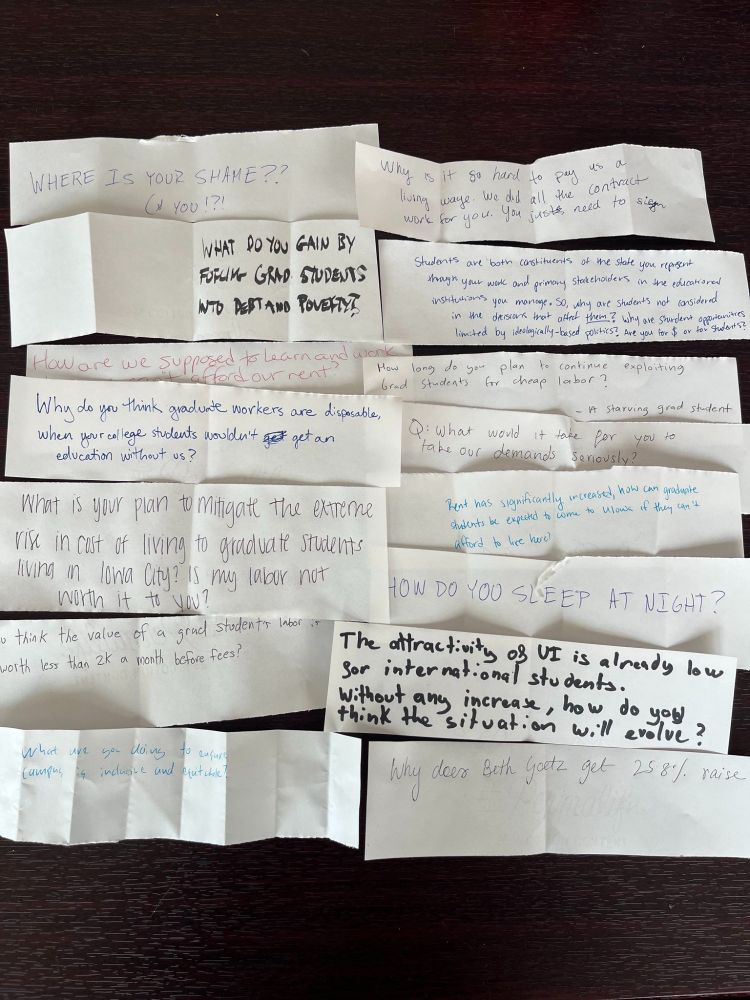 WHERE IS YOUR SHAME??
YOU!?!
WHAT DO YOU GAIN BY
FUELING GRAD STUDENTS
INTO DEBT AND POVERTY?
How are we supposed to learn and work
can't afford our rent?
Why do you think graduate workers are disposable,
when your college students wouldn't get an
education without us?
What is your plan to mitigate the extreme
rise in cost of living to graduate students
living in Iowa City? Is my labor not
worth it to you?
think the value of a grad student's labor is
worth less than 2K a month before fees?
What are you doing to ensure
campus is inclusive and equitable?
Why is it so hard to pay us a
living wage. We did all the contract
work for you. You just need to sign
Students are both constituents of the state you represent
through your work and primary stakeholders in the educational
institutions you manage. So, why are students not considered
in the decisions that affect them? Why are student opportunities
limited by ideologically-based politics? Are you for $ or for students?
How long do you plan to continue exploiting
Grad students for cheap labor?
- A starving grad student
Q: What would it take for you to
take our demands seriously?
Rent has significantly increased, how can graduate
students be expected to come to UIowa if they can't
afford to live here?
HOW DO YOU SLEEP AT NIGHT?
The attractivity of UI is already low
for international students.
Without any increase, how do you
think the situation will evolve?
Why does Beth Goetz get 25.8% raise